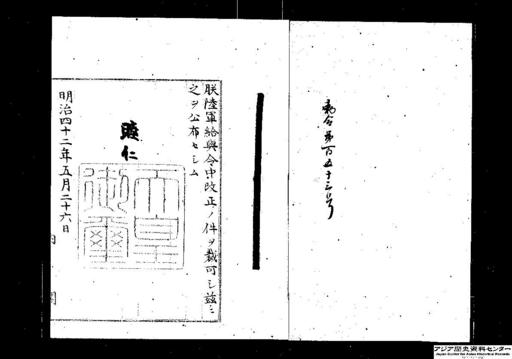 勅令第百五十三号
朕陸軍給与令中改正ノ件ヲ裁可シ茲ニ
之ヲ公布セシム
睦仁
天皇御璽
明治四十二年五月二十六日
内 閣
アジア歴史資料センター
Japan Center for Asian Historical Records